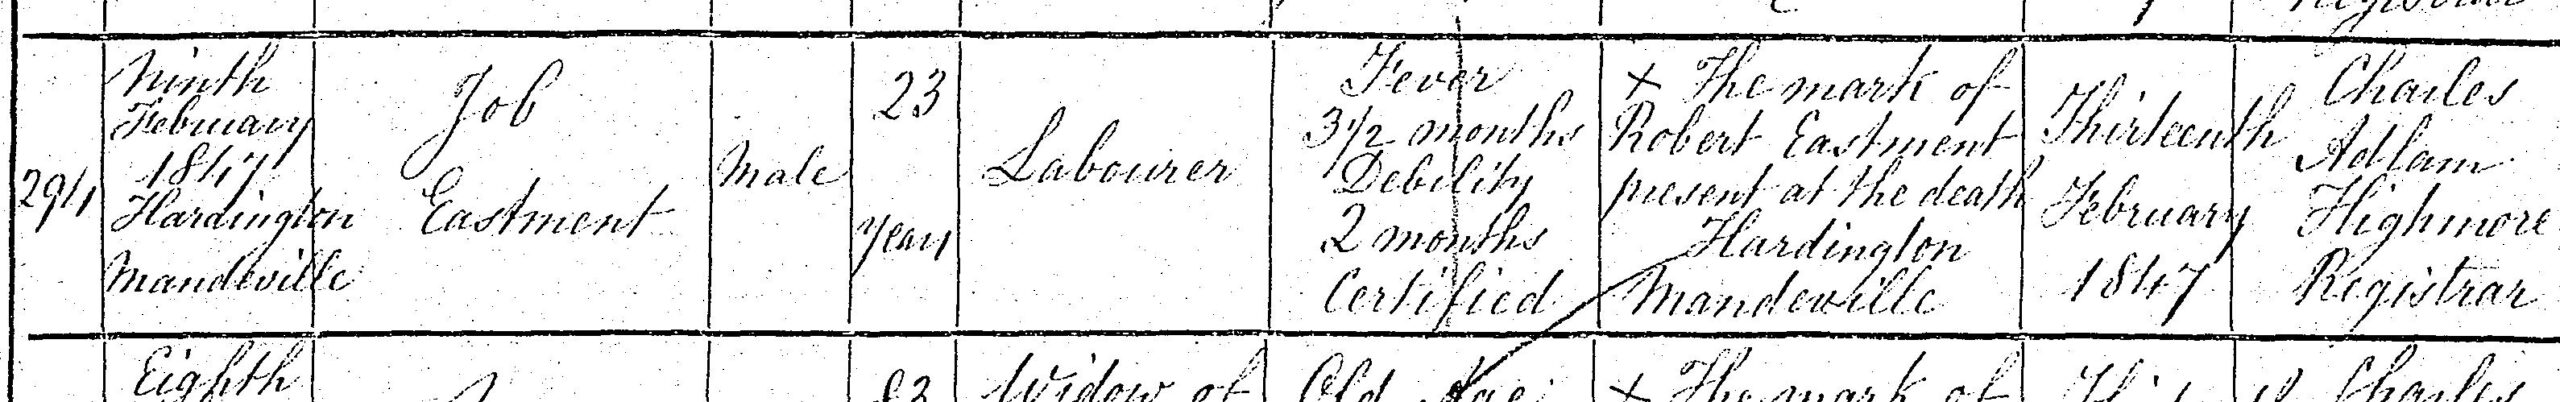 Registrar
294
Ninth
February
1847
Hardington
Mandeville
Job
Eastment
Male
23
years
Labourer
Fever
3 1/2 months
Debility
2 months
Certified
X The mark of
Robert Eastment
present at the death
Hardington
Mandeville
Thirteenth
February
1847
Charles
Adlam
Highmore
Registrar
Eighth
83
Widow of
Old Age
X The mark of
Charles